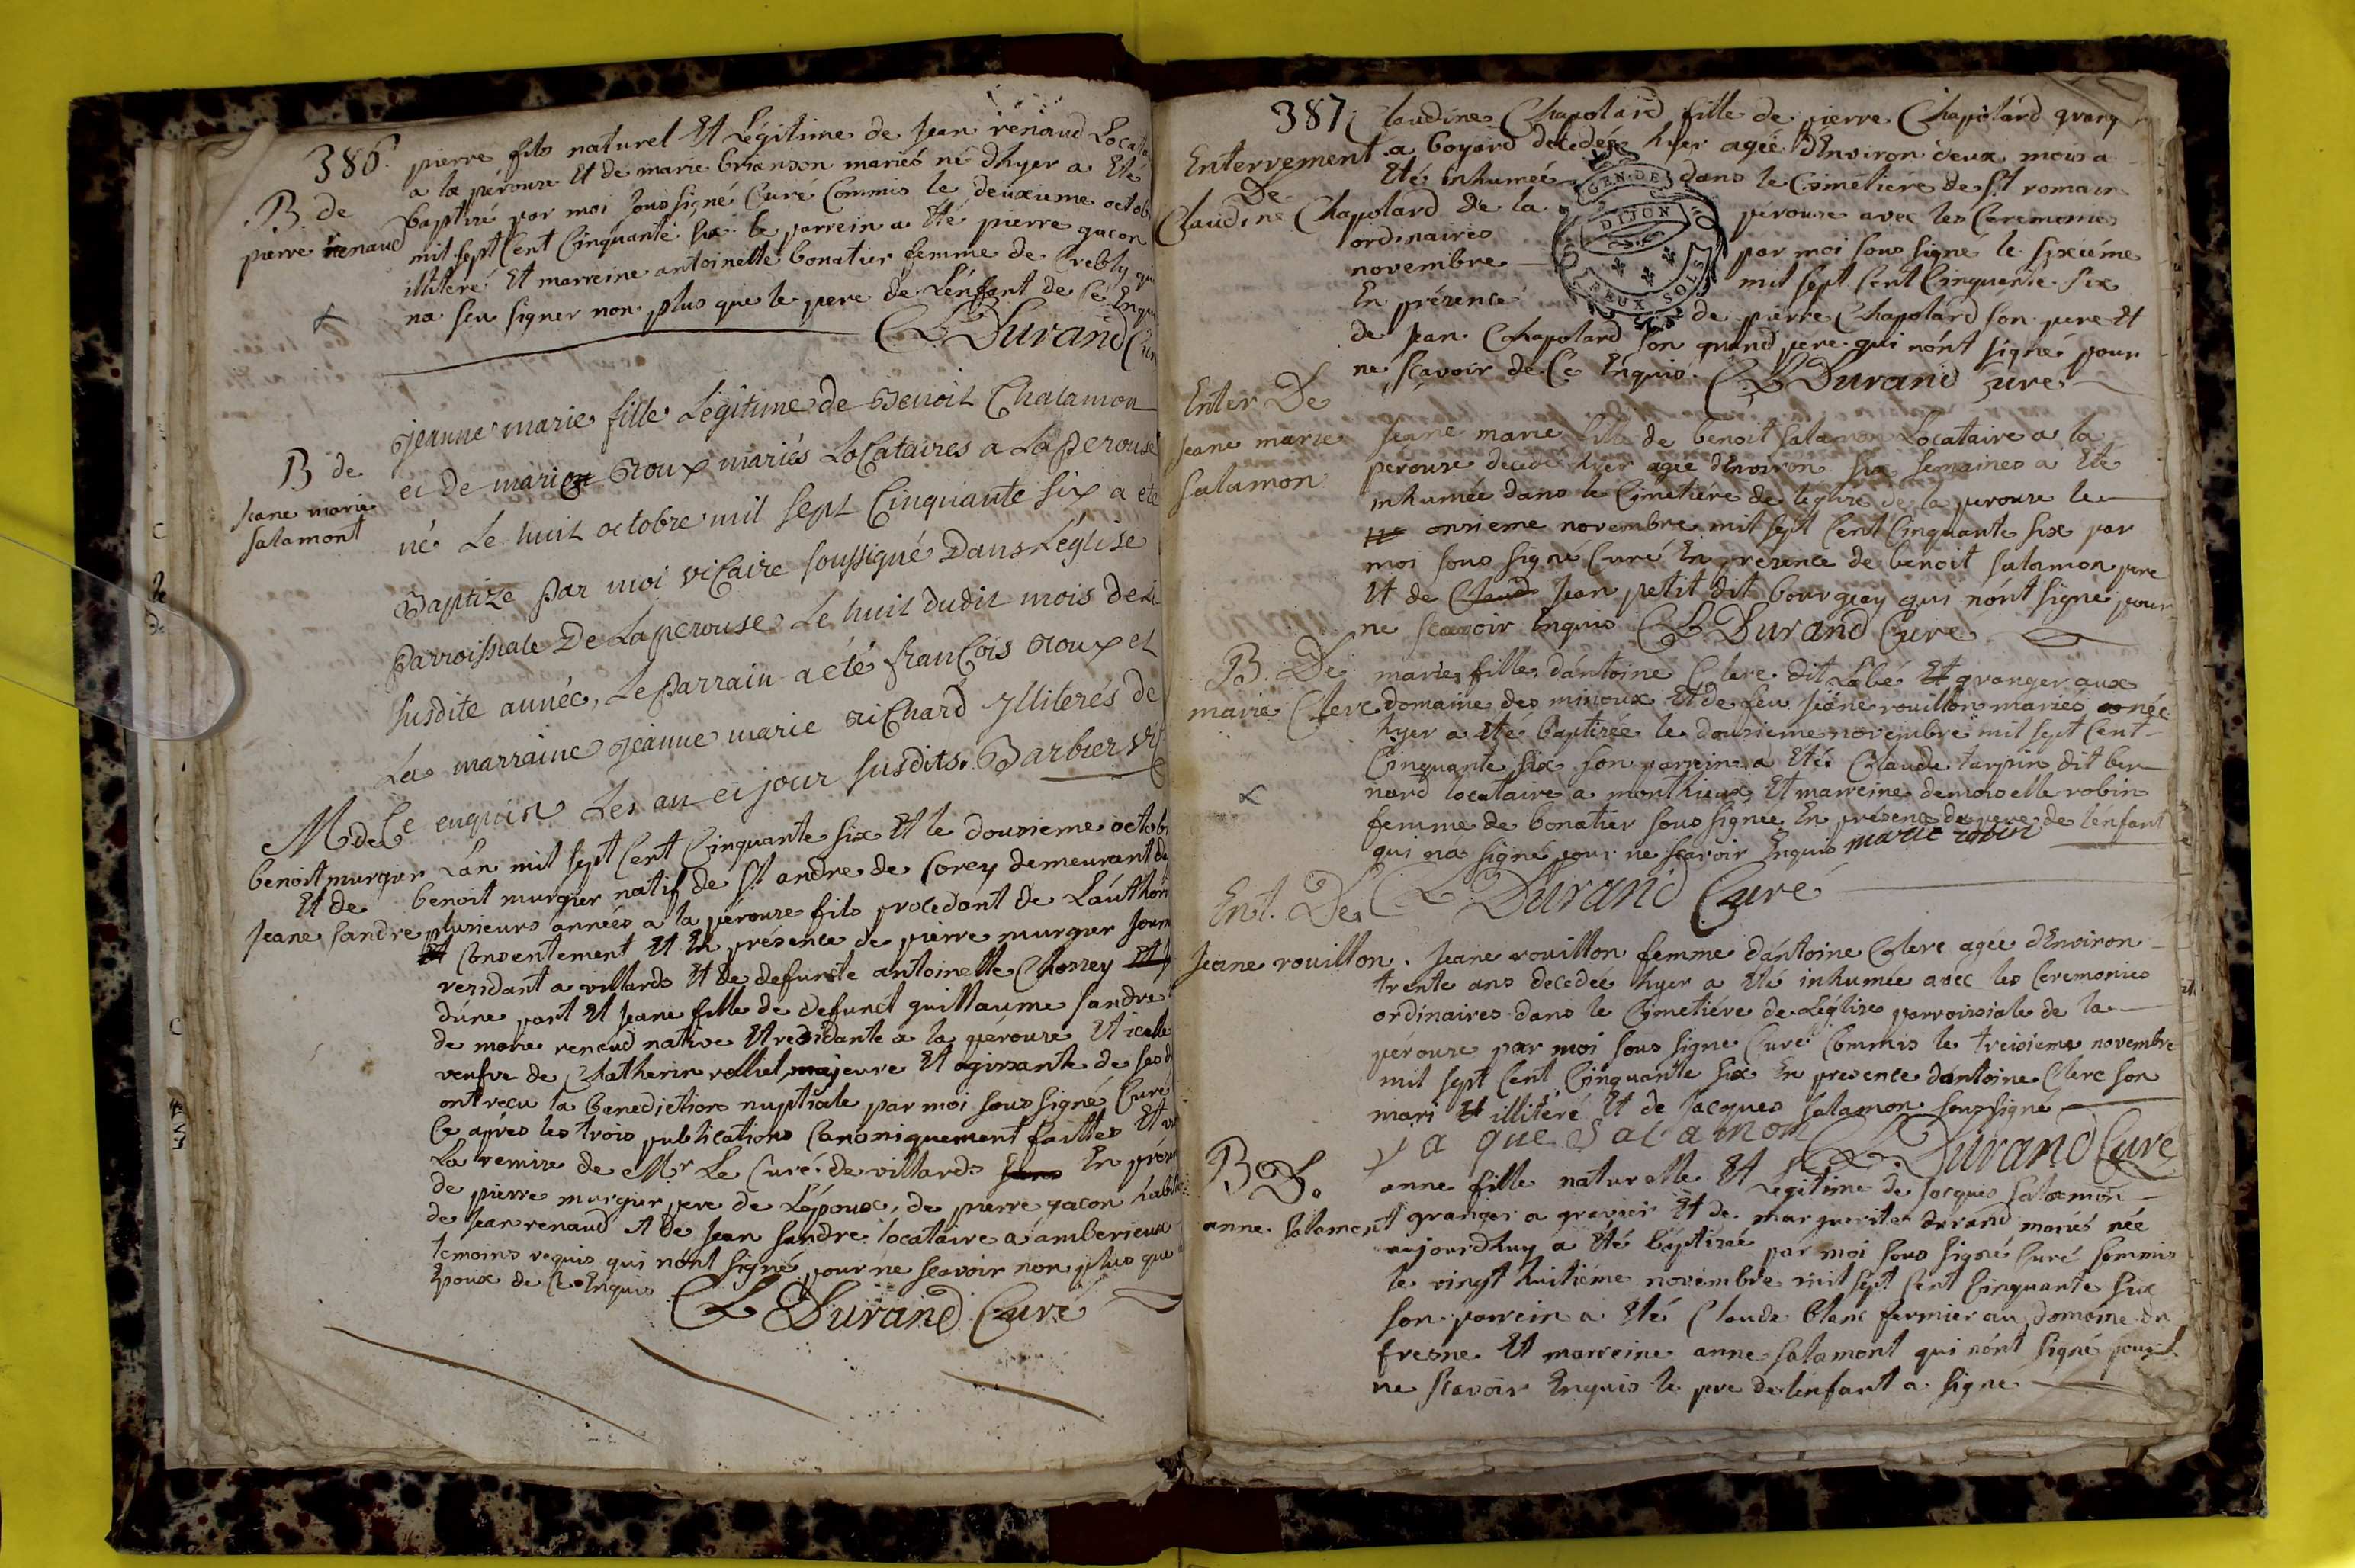 386.
pierre fils naturel Et Légitime de Jean renaud Locata
a la pérouse Et de marie brianson mariés né dhyer a Eté
B. de
pierre renaud
baptisé par moi sous signé Curé Commis le deuxieme octob
mil sept Cent Cinquante six le parrein a Eté pierre gacon
illiteré Et marreine antoinette bonatier femme de Crebly qui
na sçu signer non plus que le pere de Lénfant de Ce Enqui
CL Durand Curé
B de
Jeane marie
salamont
Jeanne marie fille Légitime de Benoit Chalamon
et de marie Roux mariés Locataires a Laperouse
né Le huit octobre mil sept Cinquante six a été
Baptize par moi vicaire soussigné Dans Léglise
parroissiale De Laperouse Le huit dudit mois de la
susdite année, Le parrain a été françois Roux et
La marraine Jeanne marie Richard yllitérés de
Ce enquis Les an et jour susdits. Barbier vic
M de
benoit murgier
Et de
Jeane sandre
Lan mil sept Cent Cinquante six Et le dousieme octob
benoit murgier natif de St andre de Corcy demeurant de
plusieurs années a la pérouse fils procedant de Láuthori
Et Consentement Et En présence de pierre murgier Journ
residant a villards Et de defuncte antoinette Chossey Et
dúne part Et Jeane fille de defunct guillaume sandre
de marie renaud native Et residante a la pérouse Et icelle
veufve de Chatherin rolliet majeure Et agissante de ses d
ont reçu la benediction nuptiale par moi sous signé Curé
Ce aprés les trois publications Canoniquement faittes Et vu
La remise de Mr Le Curé de villards En présen
de pierre murgier pere de Lépoux, de pierre gacon habit
de Jean renaud Et De Jean sandre locataire a amberieux
temoins requis qui nónt signé pour ne scavoir non plus que
Epoux de Ce Enquis
CL Durand Curé
387
Claudine Chapolard fille de pierre Chapolard grang
Enterrement
De
Claudine Chapolard
a boyard décedée hier agée dénviron deux mois a
Eté inhumée dans le Cimetiere de St romain
De la pérouse avec les Ceremonies
ordinaires par moi sous signé le sixiéme
novembre mil sept Cent Cinquante six
En présence de pierre Chapolard son pere Et
de Jean Chapolard son grand pere qui nónt signé pour
ne scavoir de Ce Enquis. CL Durand Curé
GEN. DE
DIJON
DEUX SOLS
Enter De
Jeane marie
Salamon
Jeane marie fille de benoit salamon Locataire a la
pérouse decedé hyer agée dénviron six semaines a Eté
inhumée dans le Cimetiére de léglise de la perouse le
onsieme novembre mil sept Cent Cinquante six par
moi sous signé Curé En présence de benoit salamon pere
Et de Claude Jean petit dit bourgey qui nónt signé pour
ne scavoir Enquis CL Durand Curé
B. De
marie Clerc
marie fille dántoine Clerc dit Labé Et granger aux
domaine des minoux Et de feu Jeane rouillon mariés née
hyer a Eté baptisée le dousieme novembre mil sept Cent
Cinquante six son parrein a Eté Claude tarpin dit ber
nard locataire a monthieux Et marreine demoiselle robin
femme de bonatier sous signée En présence du pere de lénfant
qui na signé pour ne scavoir Enquis marie robin
CL Durand Curé
Ent. De
Jeane rouillon.
Jeane rouillon femme dántoine Clerc agée dénviron
trente ans decedée hyer a Eté inhumée avec les Ceremonies
ordinaires dans le Cimetiére de Léglise parroissiale de la
pérouse par moi sous signe Curé Commis le treisieme novembre
mil sept Cent Cinquante six En presence dántoine Clerc son
mari Et illitéré Et de Jacques salamon soussigné
Ja que salamon CL Durand Curé
B D.
anne salamont
anne fille naturelle Et Légitime de Jacques salamon
granger a grevier Et de marguerite durand mariés née
aujourdhuy a Eté baptisée par moi sous signé Curé Commis
le vingt huitiéme novembre mil sept Cent Cinquante six
son parrein a Eté Claude blanc fermier au domaine du
fresne Et marreine anne salamont qui nónt signé pour
ne scavoir Enquis le pere de lenfant a signe